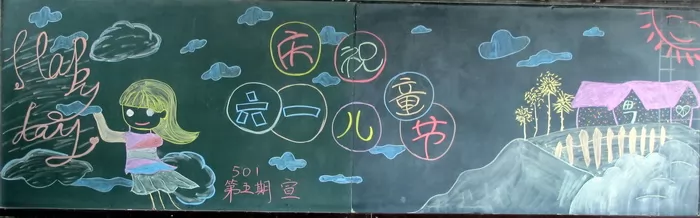 Happy
day
庆祝
六一儿童节
501
第五期 宣